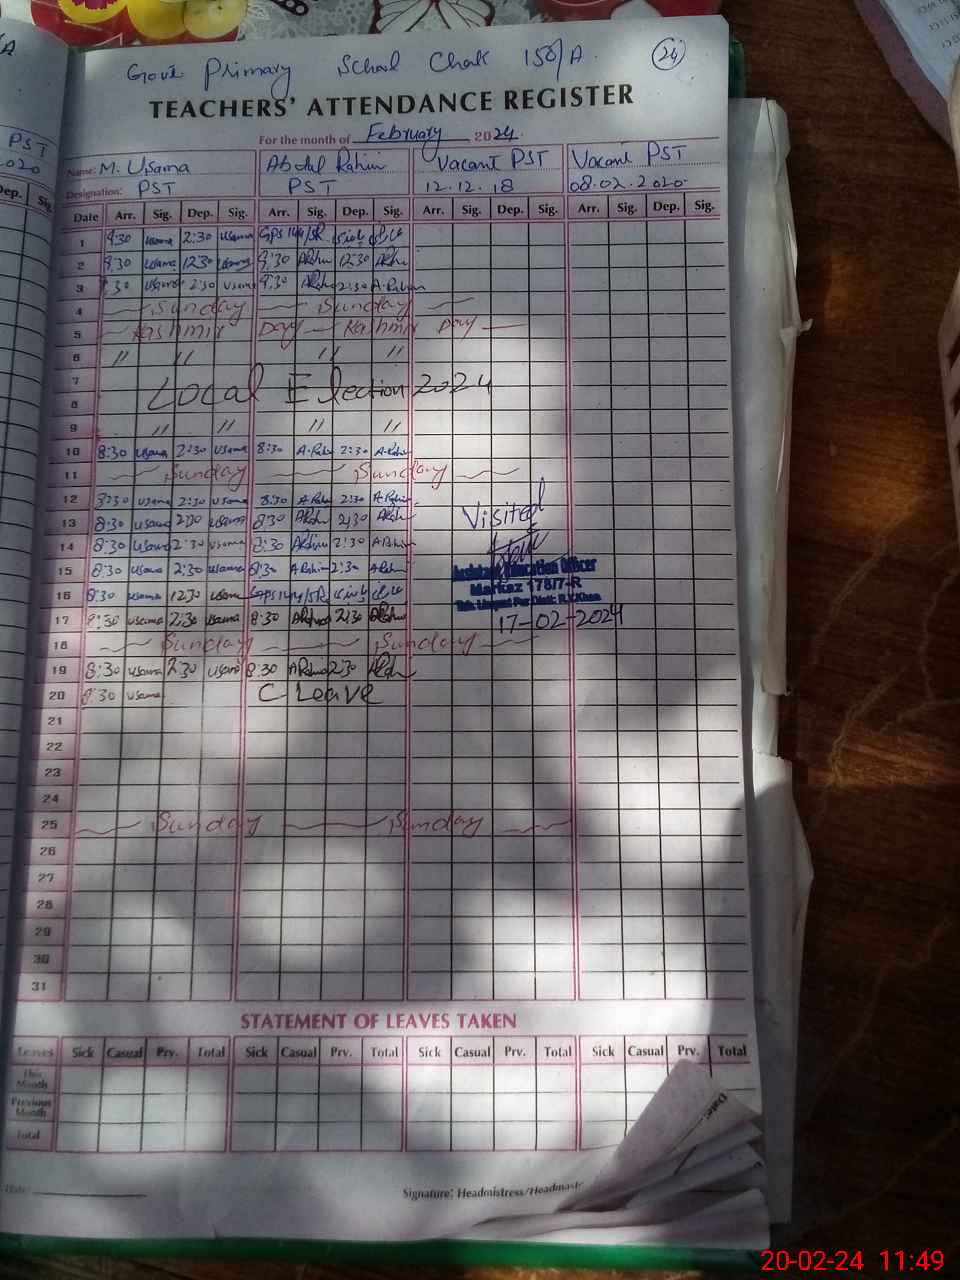 Govt Primary School Chak 158/A (24)
TEACHERS' ATTENDANCE REGISTER
For the month of February 2024.
Name: M. Usama Abdul Rahim Vacant PST Vacant PST
Designation: PST PST 12.12.18 08.02.2020
Date Arr. Sig. Dep. Sig. Arr. Sig. Dep. Sig. Arr. Sig. Dep. Sig. Arr. Sig. Dep. Sig.
1 8:30 Usama 2:30 Usama
2 8:30 Usama 12:30 Usama 8:30 ARahim 12:30 ARahim
3 8:30 Usama 2:30 Usama 8:30 ARahim 2:30 A.Rahim
4 Sunday Sunday
5 Kashmir Day Kashmir Day
6 " " " "
7 Local Election 2024
8
9 " " " "
10 8:30 Usama 2:30 Usama 8:30 A.Rahim 2:30 A.Rahim
11 Sunday Sunday
12 8:30 Usama 2:30 Usama 8:30 ARahim 2:30 ARahim
13 8:30 Usama 2:30 Usama 8:30 ARahim 2:30 ARahim
14 8:30 Usama 2:30 Usama 8:30 ARahim 2:30 ARahim
15 8:30 Usama 2:30 Usama 8:30 ARahim 2:30 ARahim
16 8:30 Usama 12:30 Usama
17 8:30 Usama 2:30 Usama 8:30 ARahim 2:30 ARahim
Visited
Assistant Education Officer
Markaz 178/7-R
Teh: Liaqat Pur Distt: R.Y.Khan
17-02-2024
18 Sunday Sunday
19 8:30 Usama 2:30 Usama 8:30 ARahim 2:30 ARahim
20 8:30 Usama C-Leave
21
22
23
24
25 Sunday Sunday
26
27
28
29
30
31
STATEMENT OF LEAVES TAKEN
Leaves Sick Casual Prv. Total Sick Casual Prv. Total Sick Casual Prv. Total Sick Casual Prv. Total
This Month
Previous Month
Total
Date:
Signature: Headmistress/Headmast
20-02-24 11:49